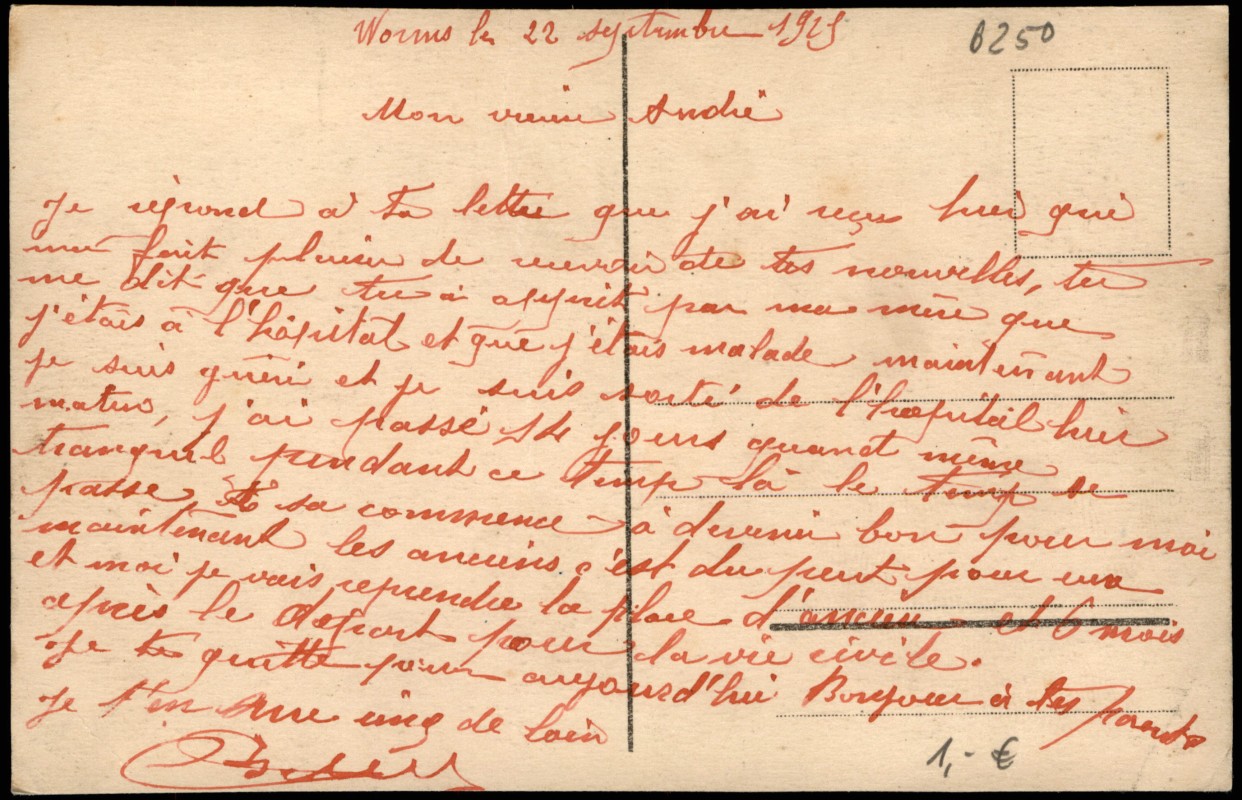 Worms le 22 septembre 1925
0250
Mon vieux André
Je répond à ta lettre que j'ai reçu hier qui
ma fait plaisir de recevoir de tes nouvelles, tu
me dit que tu a apprit par ma mère que
j'étais à l'hôpital et que j'étais malade maintenant
je suis guéri et je suis sorti de l'hopital hier
matin, j'ai passé 14 jours quand même
tranquil pendant ce temp là le temp se
passe et sa commence à devenir bon pour moi
maintenant les anciens c'est du peut pour eux
et moi je vais reprendre la place d'ancien et 6 mois
après le depart pour la vie civile.
Je te quitte pour aujourd'hui Bonjour à tes parents
Je t'en serre cinq de loin
1,- €